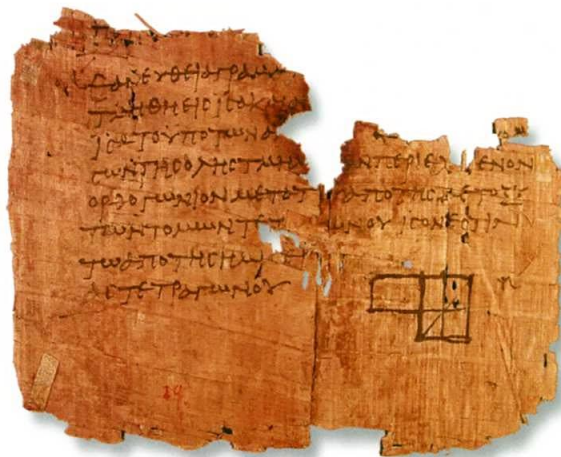 ϹΑΝ ΕΥΘΕΙΑ ΓΡΑΜ
ΤΜΗΘΗ ΕΙϹ ΙϹΑ ΚΑΙ
ΙϹΑ ΤΟ ΥΠΟ ΤΩΝ Α
ϹΩΝ ΤΗϹ ΟΛΗϹ ΤΜΗ ΩΝ ΠΕΡΙΕΧ ΕΝΟΝ
ΟΡΘΟΓΩΝΙΟΝ ΜΕΤΑ ΤΟΥ ΑΠΟ ΤΗϹ ΜΕΤΟΞΥ
ΤΩΝ ΤΟΜΩΝ ΤΕΤ ΩΝΟΥ ΙϹΟΝ ΕϹΤΙΝ
ΤΩ ΑΠΟ ΤΗϹ ΗΜΙ
ΑϹ ΤΕΤΡΑΓΩΝΟΥ